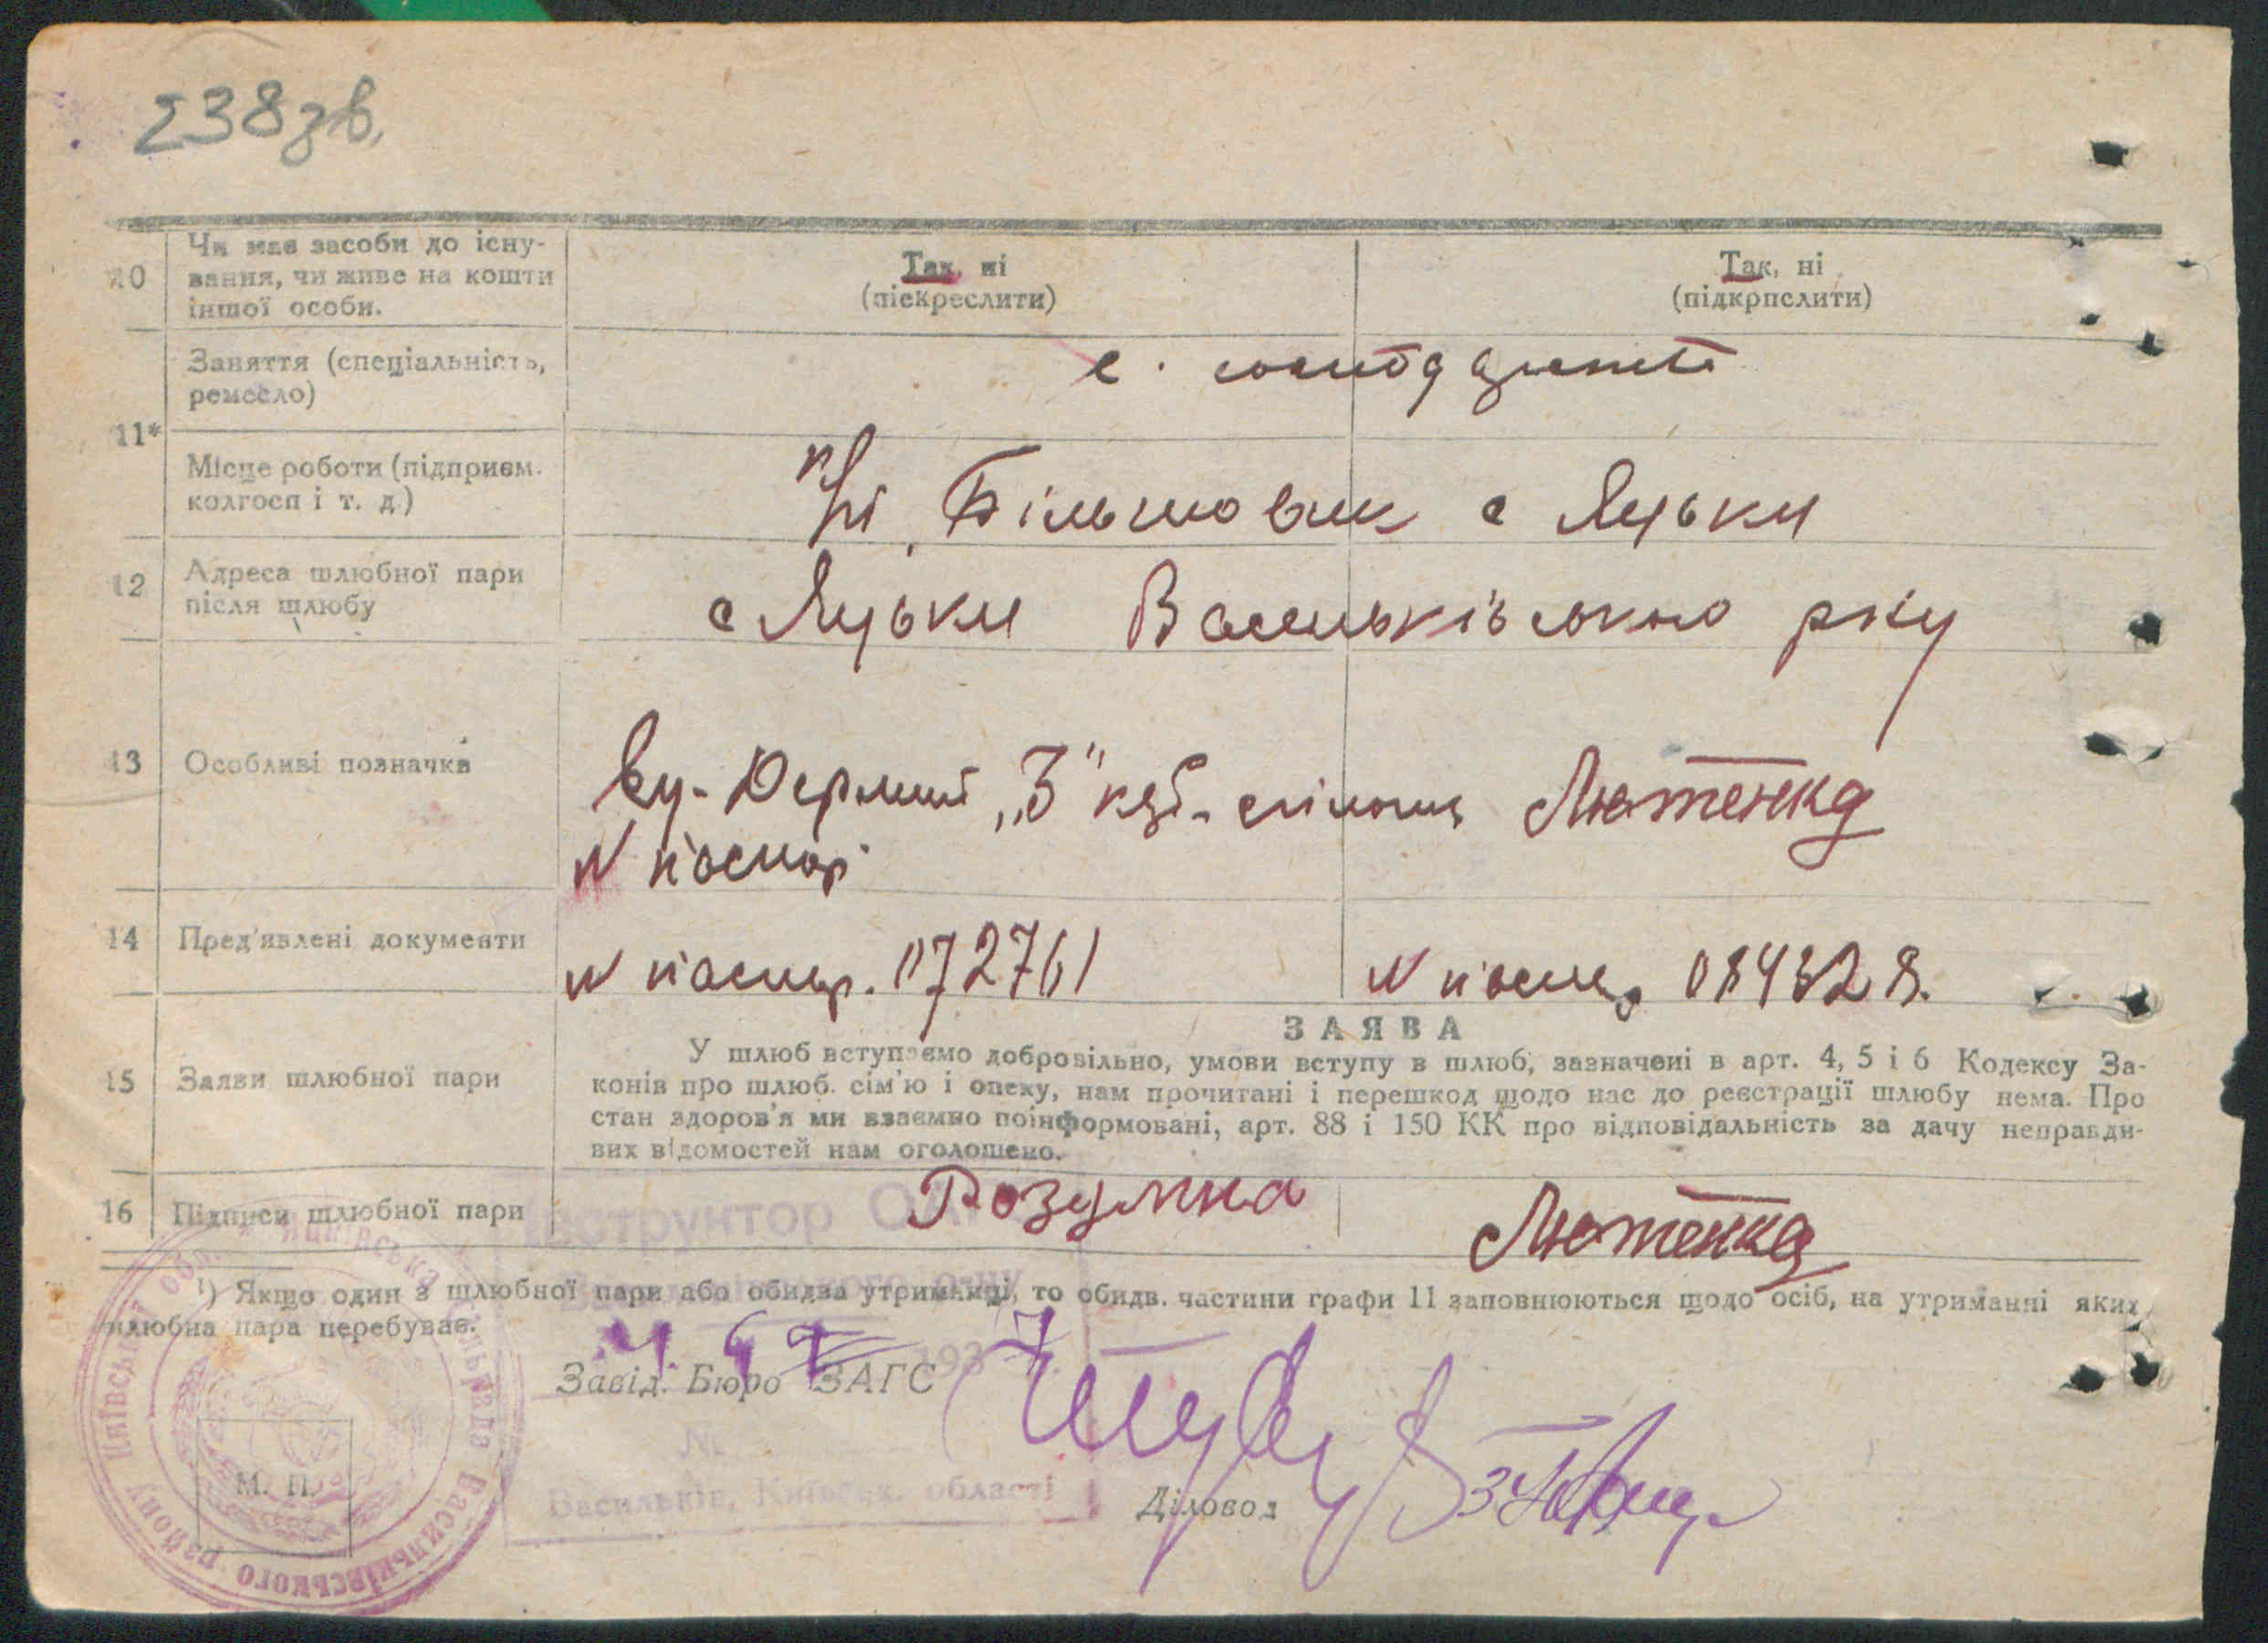 238 зв.
10
Чи має засоби до існу-
вання, чи живе на кошти
іншої особи.
Так, ні
(піскреслити)
Так, ні
(підкрпслити)
11*
Заняття (спеціальність,
ремесло)
с.
Місце роботи (підприєм.
колгосп і т. д.)
Більшовик с Яцьки
12
Адреса шлюбної пари
після шлюбу
с Яцьки Васильківського рну
13
Особливі позначки
"3" крб. Лютенко
N паспор
14
Пред'явлені документи
N паспор. 072761
N паспор 084328.
15
Заяви шлюбної пари
ЗАЯВА
У шлюб вступаємо добровільно, умови вступу в шлюб, зазначені в арт. 4, 5 і 6 Кодексу За-
конів про шлюб. сім'ю і опеку, нам прочитані і перешкод щодо нас до реєстрації шлюбу нема. Про
стан здоров'я ми взаємно поінформовані, арт. 88 і 150 КК про відповідальність за дачу неправди-
вих відомостей нам оголошено.
16
Підписи шлюбної пари
Розумна
Лютенко
Інструктор
¹) Якщо один з шлюбної пари або обидва утриманці, то обидв. частини графи 11 заповнюються щодо осіб, на утриманні яких
шлюбна пара перебуває.
1937
Завід. Бюро ЗАГС
№
Васильків, Київськ. області
Діловод
М. П.
Васильківського району Київської обл.